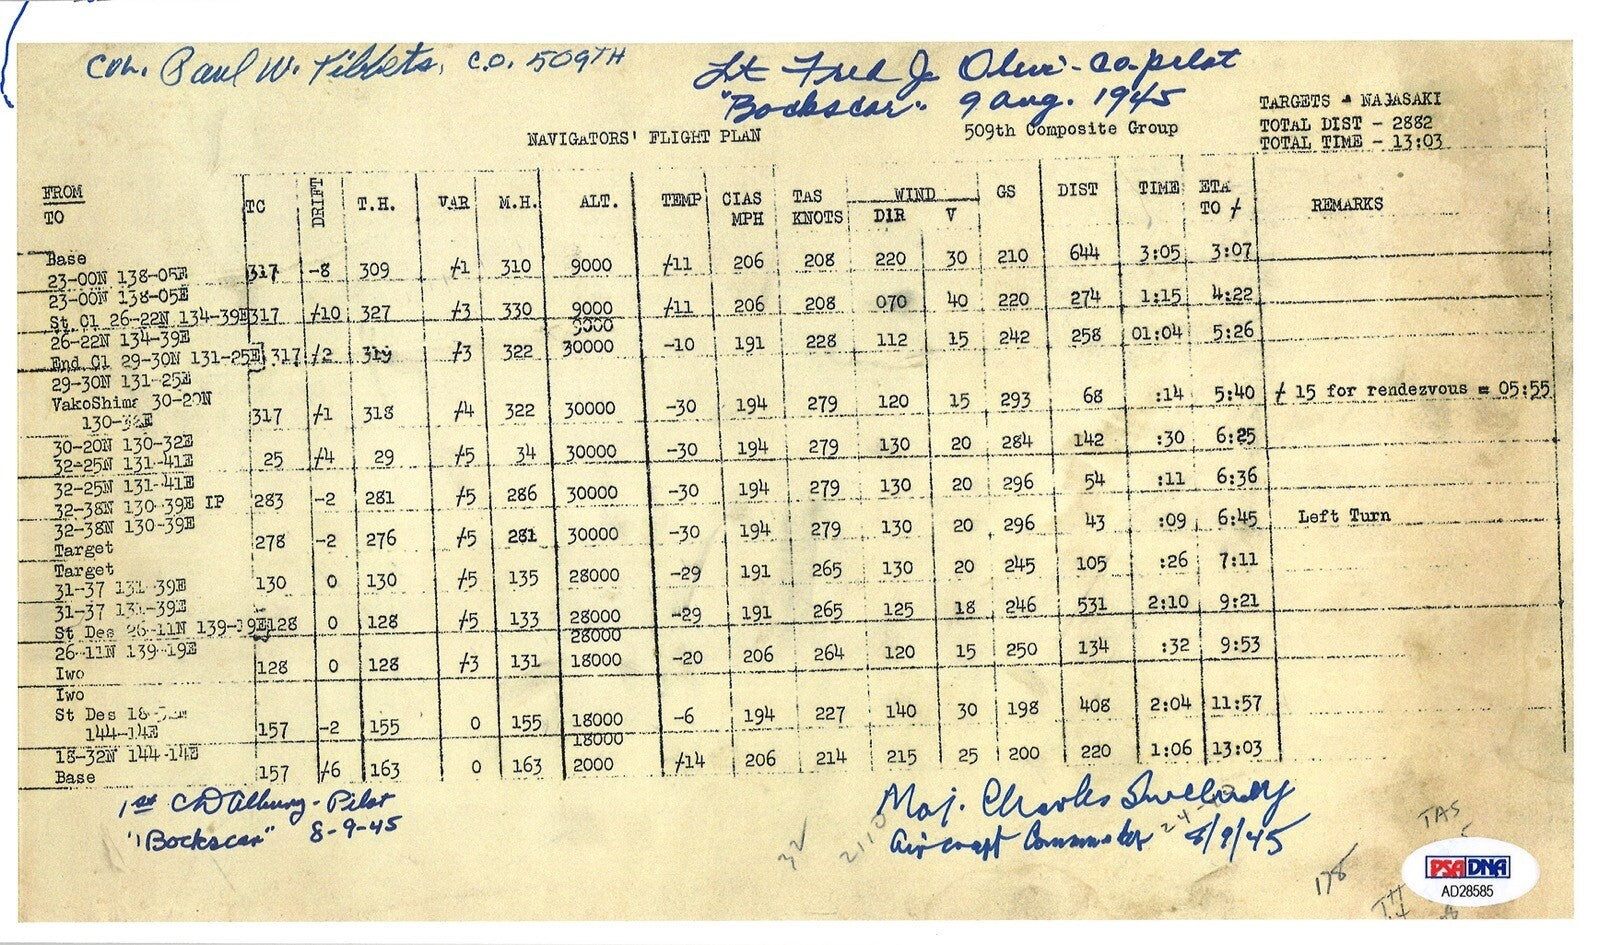 Col. Paul W. Tibbets, C.O. 509TH
Lt Fred J Olivi - Co-pilot
"Bockscar" 9 Aug. 1945
TARGETS - NAGASAKI
NAVIGATORS' FLIGHT PLAN
509th Composite Group
TOTAL DIST - 2882
TOTAL TIME - 13:03
FROM TO TC DRIFT T.H. VAR M.H. ALT. TEMP CIAS MPH TAS KNOTS WIND DIR V GS DIST TIME ETA TO / REMARKS
Base
23-00N 138-05E 317 -8 309 /1 310 9000 /11 206 208 220 30 210 644 3:05 3:07
23-00N 138-05E
St Cl 26-22N 134-39E 317 /10 327 /3 330 9000 /11 206 208 070 40 220 274 1:15 4:22
26-22N 134-39E 9000
End Cl 29-30N 131-25E 317 /2 319 /3 322 30000 -10 191 228 112 15 242 258 01:04 5:26
29-30N 131-25E
VakoShima 30-20N
130-32E 317 /1 318 /4 322 30000 -30 194 279 120 15 293 68 :14 5:40 / 15 for rendezvous = 05:55
30-20N 130-32E
32-25N 131-41E 25 /4 29 /5 34 30000 -30 194 279 130 20 284 142 :30 6:25
32-25N 131-41E
32-38N 130-39E IP 283 -2 281 /5 286 30000 -30 194 279 130 20 296 54 :11 6:36
32-38N 130-39E
Target 278 -2 276 /5 281 30000 -30 194 279 130 20 296 43 :09 6:45 Left Turn
Target
31-37 131-39E 130 0 130 /5 135 28000 -29 191 265 130 20 245 105 :26 7:11
31-37 131-39E
St Des 26-11N 139-19E 128 0 128 /5 133 28000 -29 191 265 125 18 246 531 2:10 9:21
26-11N 139-19E 28000
Iwo 128 0 128 /3 131 18000 -20 206 264 120 15 250 134 :32 9:53
Iwo
St Des
144-14E 157 -2 155 0 155 18000 -6 194 227 140 30 198 408 2:04 11:57
18-32N 144-14E 18000
Base 157 /6 163 0 163 2000 /14 206 214 215 25 200 220 1:06 13:03
1st CD Albury - Pilot
"Bockscar" 8-9-45
Maj. Charles Sweeney
Aircraft Commander 8/9/45
32
TAS
178
PSA DNA
AD28585